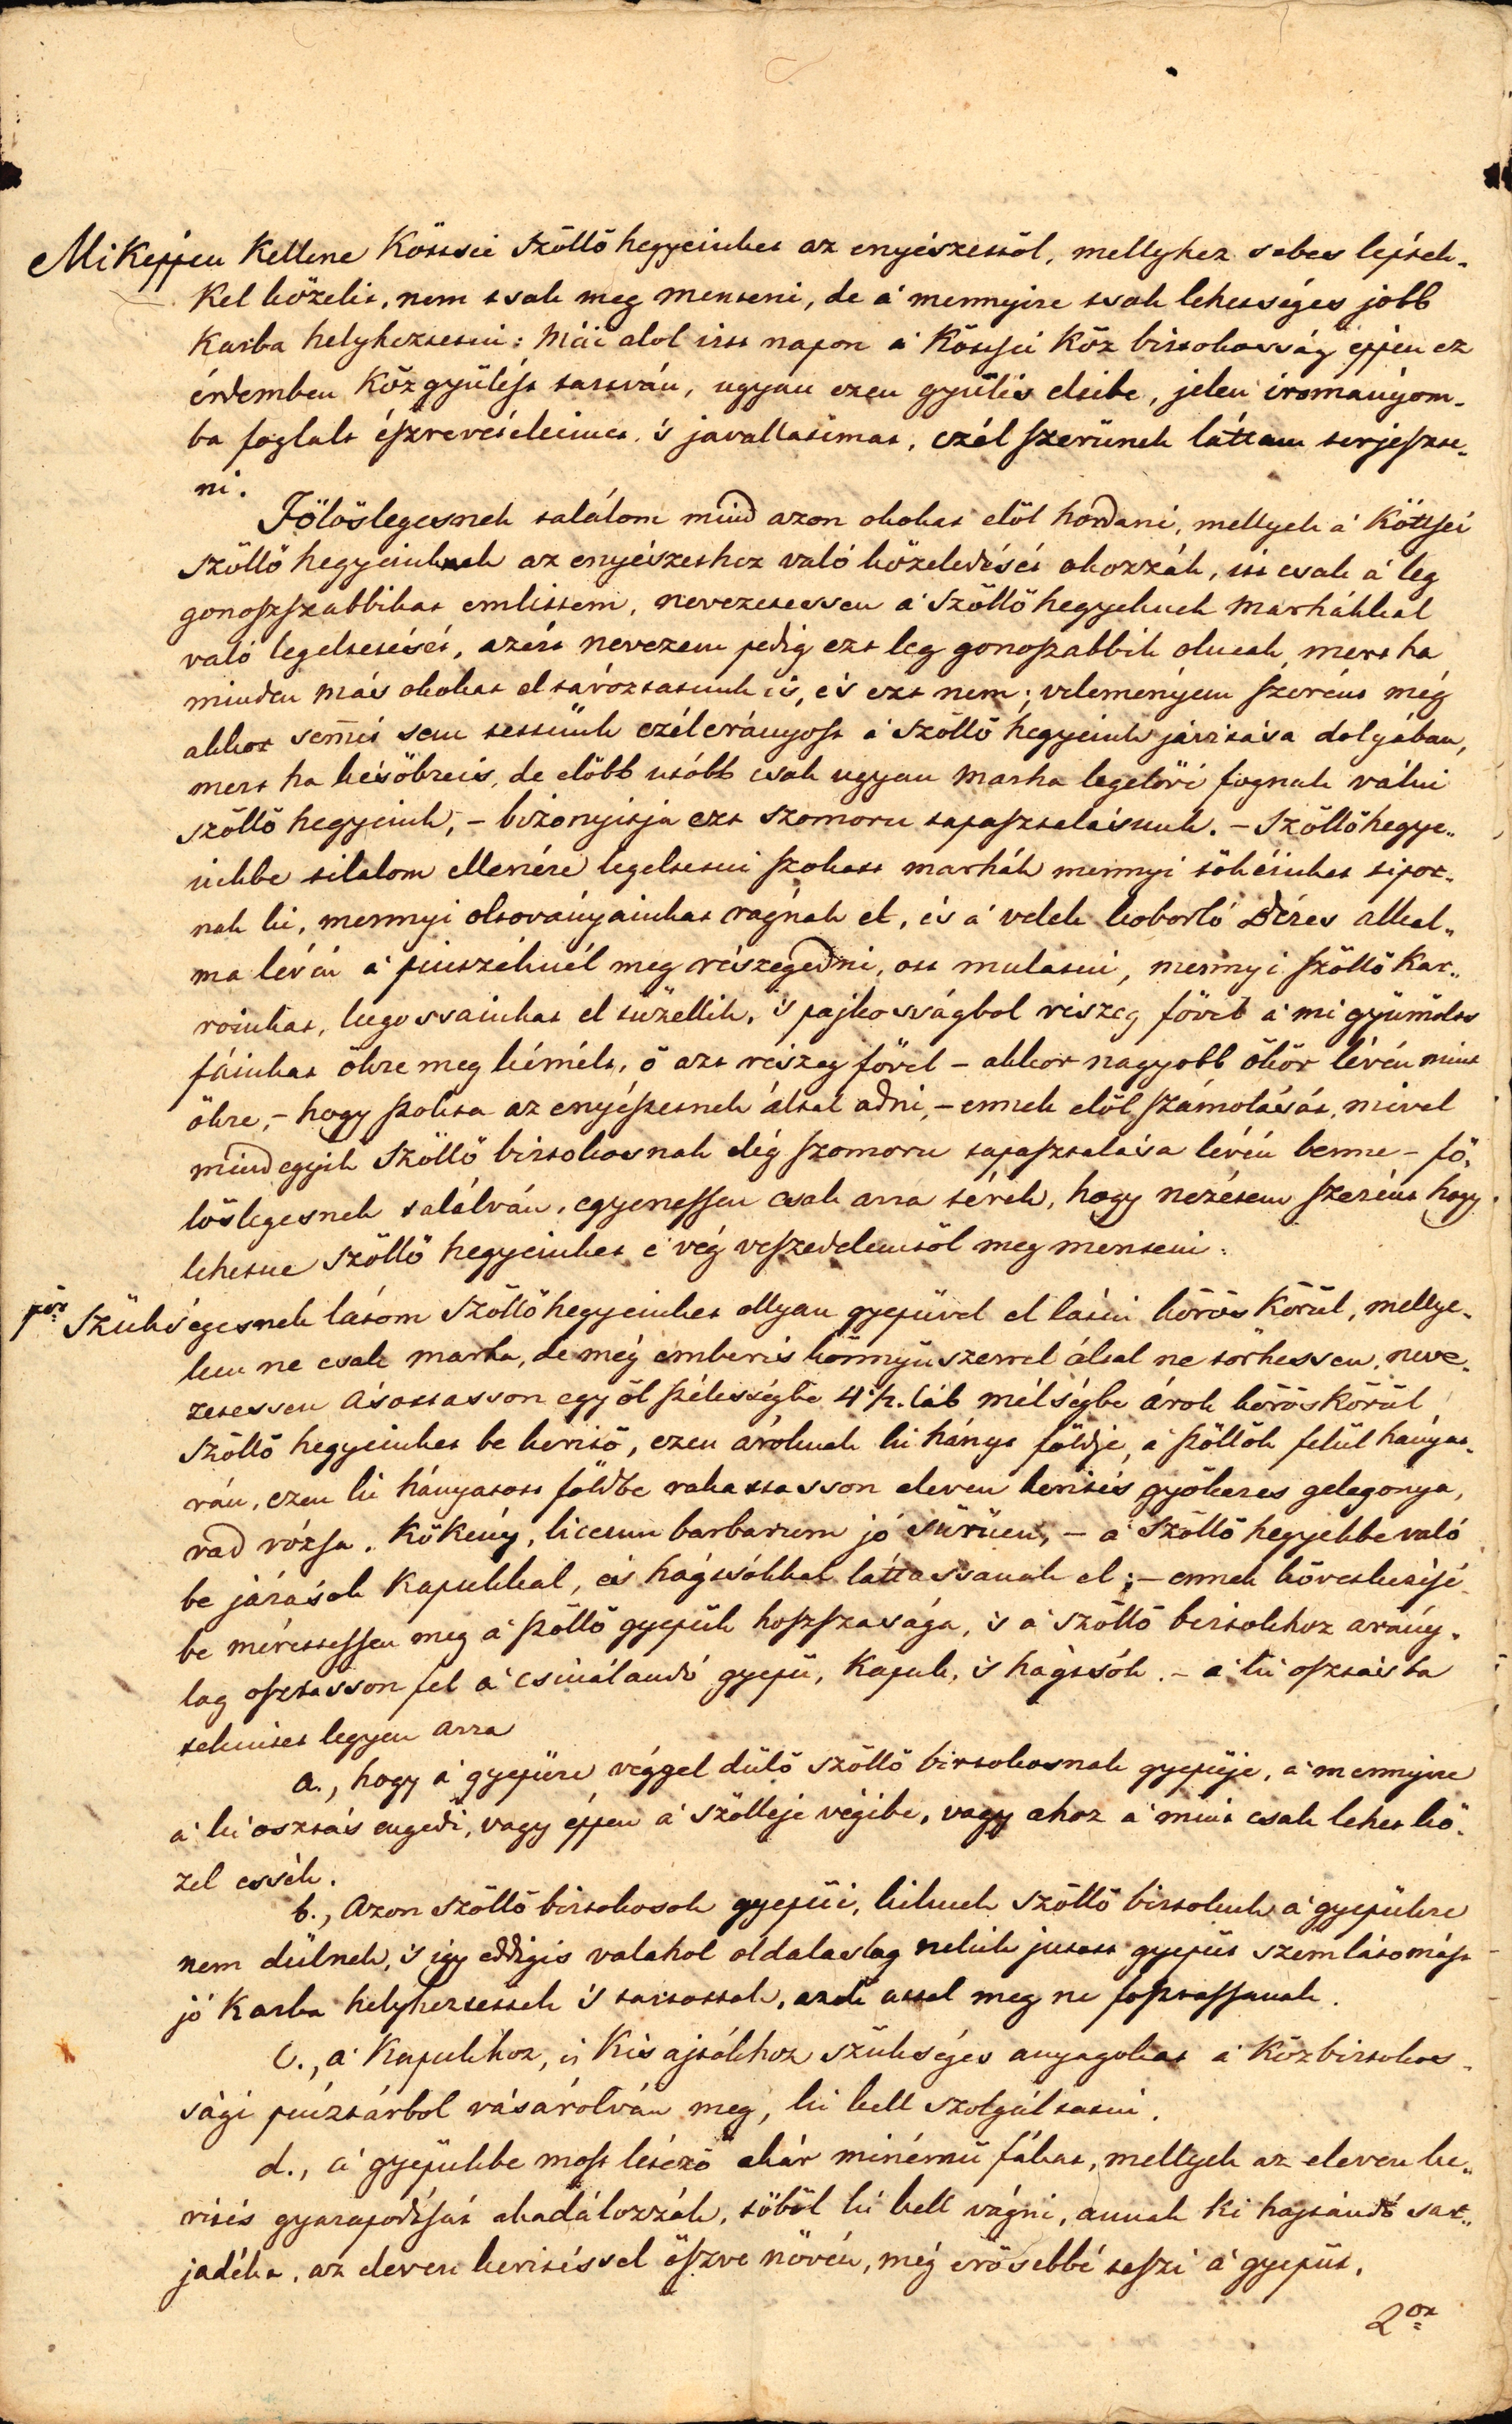 Miképpen kellene Köttsei Szöllő hegyeinket az enyészettöl, mellyhez sebes léptek-
kel közelit, nem tsak meg menteni, de a' mennyire tsak lehettséges jobb
karba helyheztetni: Mái alol irtt napon a' Köttsei Köz birtokosság éppen ez
érdemben Közgyülést tartván, ugyan ezen gyülés eleibe, jelen irományom-
ba foglalt észrevételeimet, 's javallatimat, czél szerünek láttam terjeszte-
ni.
Fölöslegesnek találom mind azon okokat elöl hordani, mellyek a' Köttsei
Szöllő hegyeinknek az enyészethez való közeledését okozzák, itt csak a' leg
gonoszszabbikat emlittem, nevezetessen a' Szöllő hegyeknek Marhákkal
való legeltetését, azért nevezem pedig ezt leg gonoszabbik oknak, mert ha
minden más okokat el távoztatunk is, és ezt nem; velemenyem szerént még
akkor semmit sem tettünk czélerányost a' Szöllő hegyeink járttása dolgában,
mert ha késöbre is, de elöbb utóbb csak ugyan Marha legelövé fognak válni
Szöllő hegyeink, – bizonyitja ezt szomoru tapasztalásunk. – Szöllőhegye-
inkbe tilalom ellenére legeltetni szokott marhák mennyi tökéinket tipor-
nak ki, mennyi oltoványainkat rágnak el, és a' velek koborló Béres alkal-
ma lévén a' pinczéknél meg részegedni, ott mulatni, mennyi szöllő kar-
roinkat, lugossainkat el tüzellik, 's pajkosságbol részeg fővel a' mi gyümölts
fáinkat ökre meg kémélt, ő azt részeg fővel – akkor nagyobb ökör lévén mint
ökre, – hogy szokta az enyészetnek által adni, – ennek elöl számolását, mivel
mind egyik Szöllő birtokosnak elég szomoru tapasztalása lévén benne – fö-
löslegesnek találván, egyenessen csak arra térek, hogy nézetem szerént hogy
lehetne Szöllő hegyeinket e' vég veszedelemtöl meg menteni.
1ör Szükségesnek látom Szöllőhegyeinket ollyan gyepüvel el látni körös körül, mellye-
ken ne csak marha, de még ember is könnyü szerrel által ne törhessen, neve-
zetessen Ásattasson egy öl szélességbe 4 1/2. láb mélségbe árok köröskörül
Szöllő hegyeinket be keritő, ezen ároknak ki hányt földje, a' szöllők felül hányat-
ván, ezen ki hányatott földbe rakattasson eleven kerités gyökeres gelegonya,
vad rózsa, kökény, liceum barbarum jó sürüen, – a' Szöllő hegyekbe való
be járások kapukkal, és hágtsókkal láttassanak el; – ennek következésé-
be mérettessen meg a' szöllő gyepük hoszszasága, 's a' Szöllő birtokhoz arány-
lag osztasson fel a' csinálandó gyepü, kapuk, 's hágtsók. – a' ki osztásba
tekintet legyen arra
a., hogy a' gyepüre véggel dülő szöllő birtokosnak gyepüje, a' mennyire
a' ki osztás engedi, vagy éppen a' Szölleje végibe, vagy ahoz a' mint csak lehet kö-
zel essék.
b., Azon Szöllő birtokosok gyepüi, kiknek Szöllő birtokuk a' gyepükre
nem dülnek, 's igy eddigis valahol oldalaslag nekik jutott gyepüt szemlátomást
jó karba helyheztették 's tartották, azok attol meg ne fosztassanak.
C., a' Kapukhoz, és Kis ajtókhoz szükséges anyagokat a' Közbirtokos-
sági pénztárbol vásárolván meg, ki kell szolgáltatni.
d., a' gyepükbe most létező akár minémü fákat, mellyek az eleven ke-
rités gyarapodását akadálozzák, töböl ki kell vágni, annak ki hajtandó sar-
jadéka, az eleven keritéssel öszve növén, még erösebbé teszi a' gyepüt.
2or